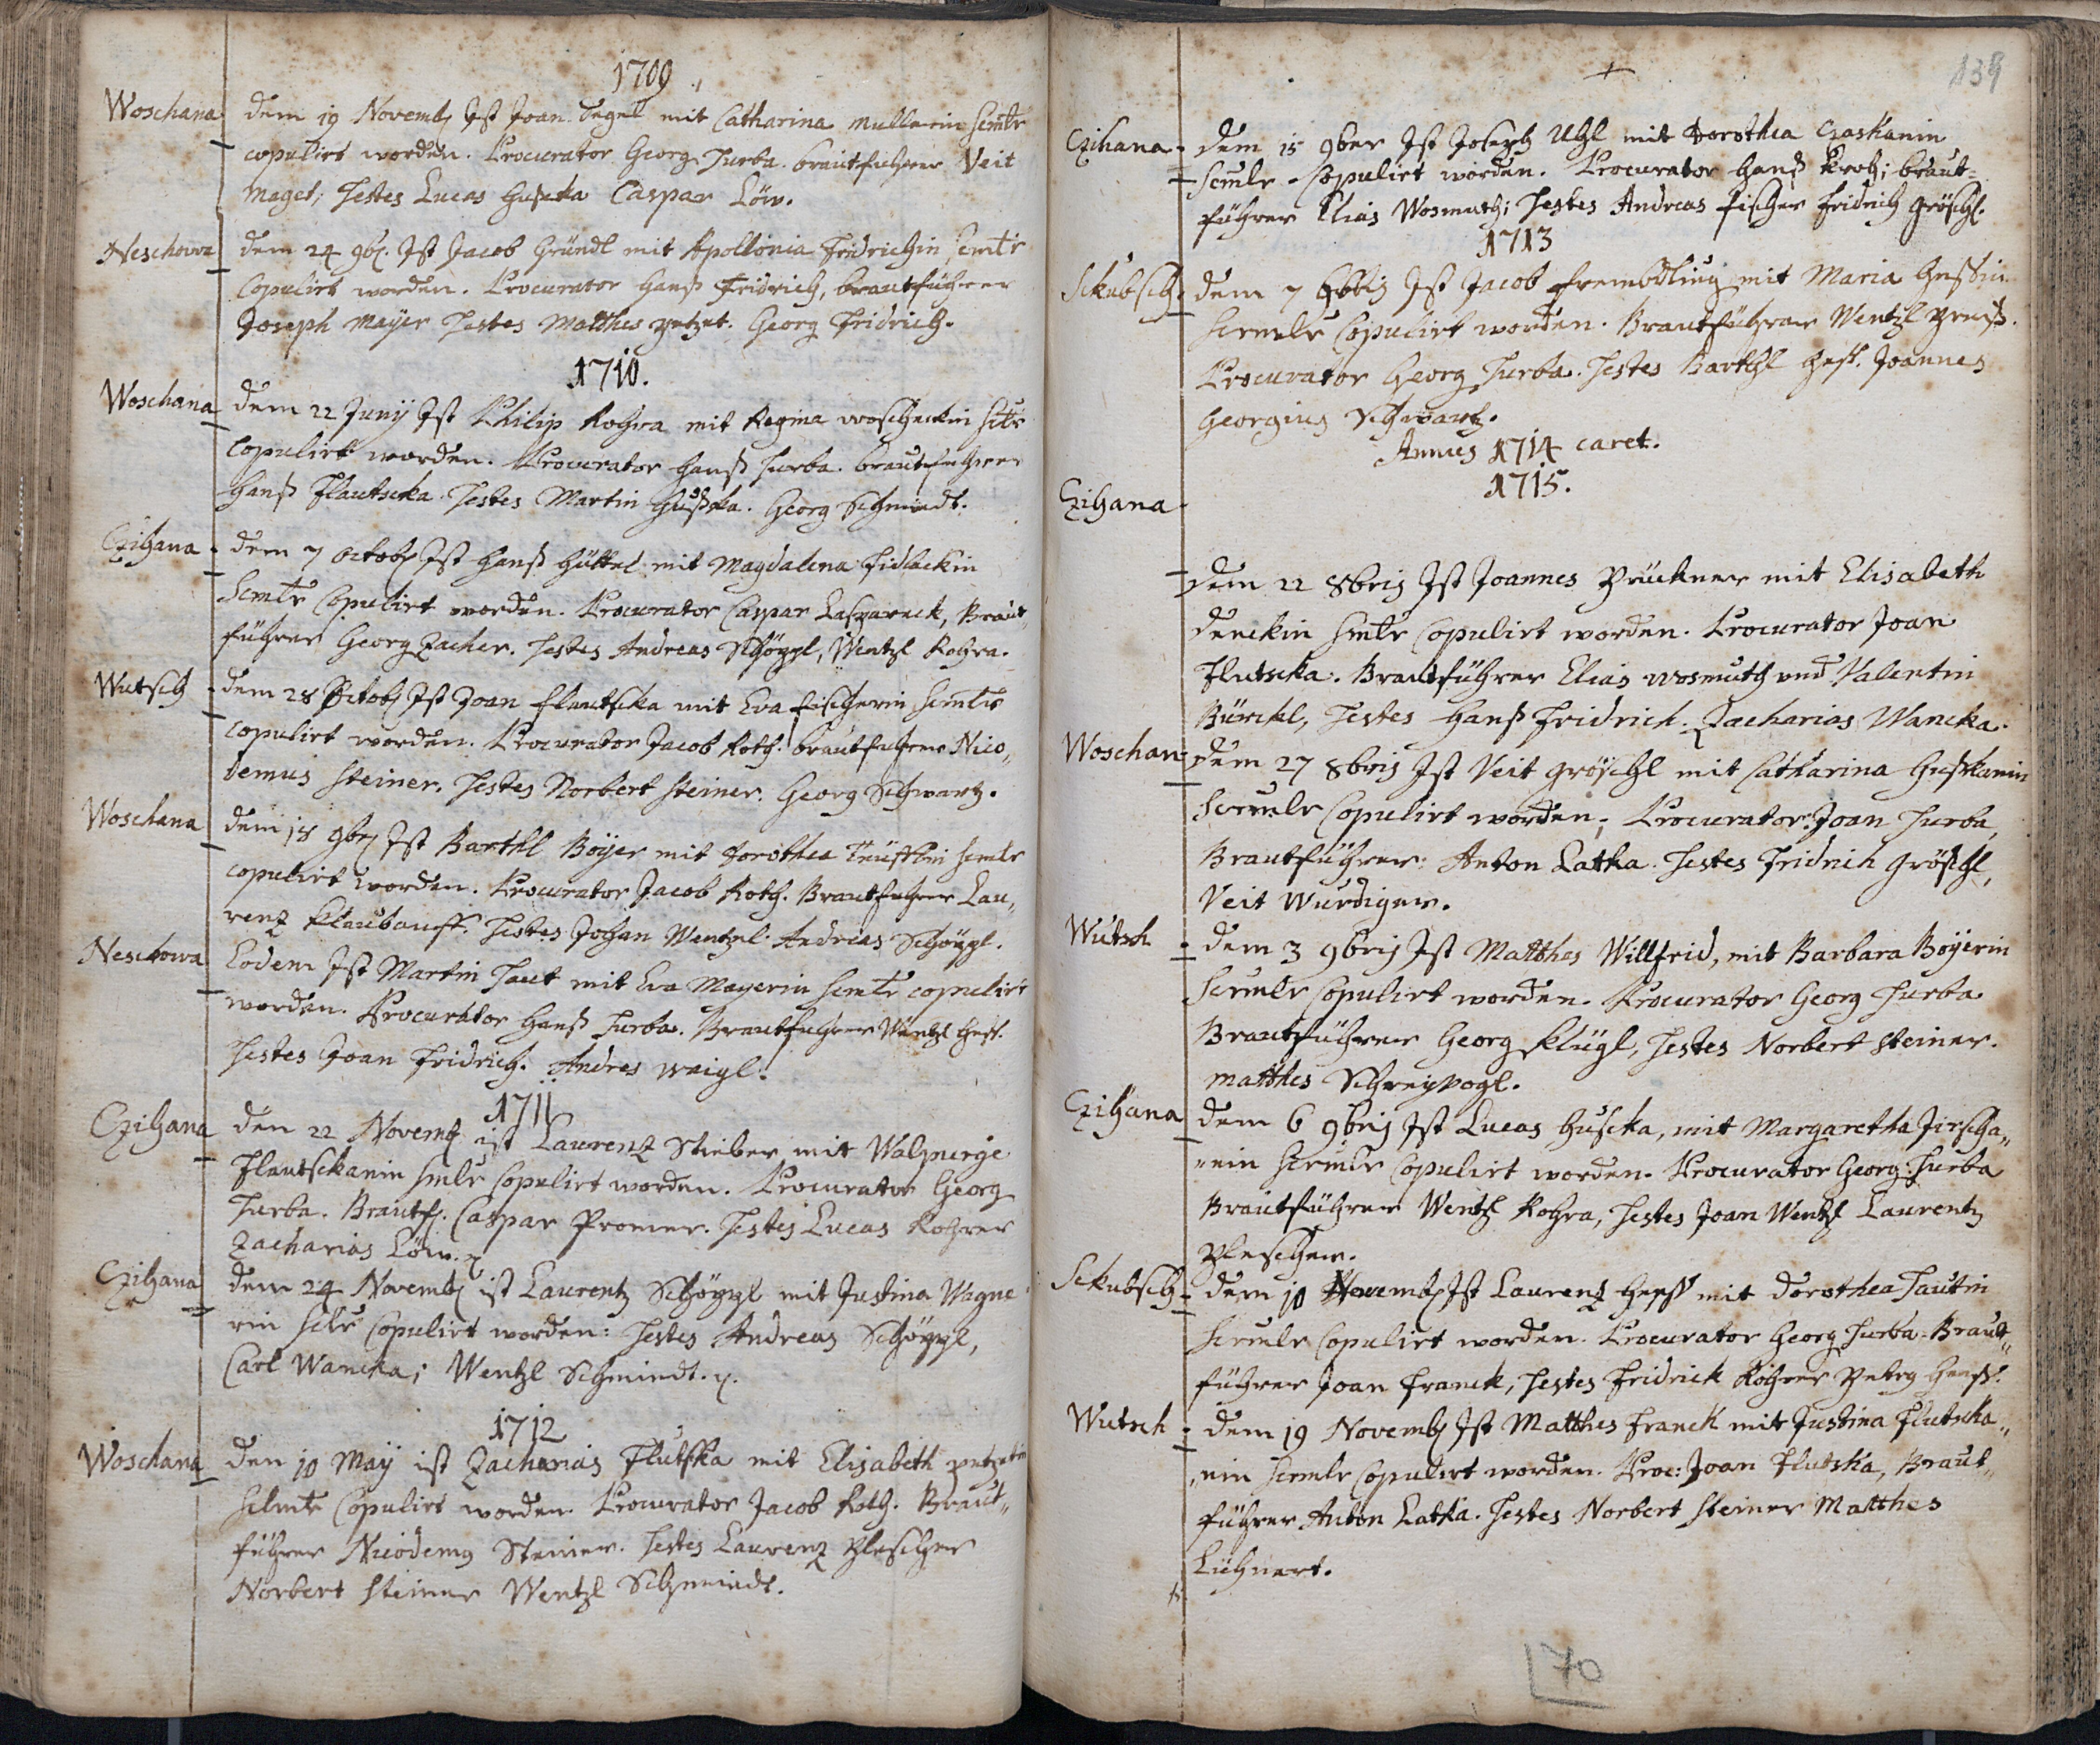 1709
Woschana dem 19 Novemb Ist Joan Tegel mit Catharina Mullerin Semtr
copulirt worden. Procurator Georg Turba. brautfuhrer Veit
Maget; Testes Lucas Huscka Caspar Löw.
Neschowa dem 24 9br. Ist Jacob Gründl mit Apollonia Fridrichin Semtr
Copulirt worden. Procurator Hanß Fridrich, brautführer
Joseph Mayer Testes Matthes Petzet. Georg Fridrich.
1710.
Woschana dem 22 Junij Ist Philip Rohra mit Regina
Copulirt worden. Procurator Hanß Turba. brautfuhrer
Hanß Flautscka. Testes Martin Hußka. Georg Schmiedt.
Czihana dem 7 Octob Ist Hanß Hüttel mit Magdalena Fidlackin
Semtr Copulirt worden. Procurator Caspar Kaspareck, Braut-
führer Georg Zacher. Testes Andreas Schöppl, Wentzl Rohra.
Wutsch dem 28 Octob Ist Joan Flautscka mit Eva Fischerin Semtr
copulirt worden. Procurator Jacob Roth. brautfuhrer Nico-
demus Steiner. Testes Norbert Steiner. Georg Schwartz.
Woschana dem 18 9br Ist Barthl Böyer mit Dorothea Semtr
copulirt worden. Procurator Jacob Roth. Brautfuhrer Lau-
renz Klaubauff. Testes Johan Wentzel. Andreas Schöppl.
Neschowa Eodem Ist Martin Taut mit Eva Mayerin Semtr copulirt
worden. Procurator Hanß Turba. Brautfuhrer Wentzl Heß.
Testes Joan Fridrich. Andres Weigl.
1711
Czihana den 22 Novemb ist Laurenz Stieber mit Walpurge
Flautsckanin Smlr Copulirt worden. Procurator Georg
Turba. Brautf. Caspar Promer. Testes Lucas Rohrer
Zacharias Löw.
Czihana dem 24 Novemb ist Laurentz Schöppl mit Justina Wagne-
rin Copulirt worden: Testes Andreas Schöppl,
Carl Wancka; Wentzl Schmiedt.
1712
Woschana den 10 May ist Zacharias Flutska mit Elisabeth Petzetin
Copulirt worden. Procurator Jacob Roth. Braut-
führer Nicodemus Steiner. Testes Laurenz Plescher
Norbert Steiner Wentzl Schmiedt.
139
Czihana dem 15 9ber Ist Joseph Uhl mit Dorothea Czaskanin
Semlr Copulirt worden. Procurator Hanß Kroh; braut-
führer Elias Wosmuth; Testes Andreas Fischer Fridrich Gröschl.
1713
Sckubsch dem 7 Ist Jacob Frembdling mit Maria Heßin
Semlr Copulirt worden. Brautführer Wentzl Preiß.
Procurator Georg Turba. Testes Barthl Heß. Joannes
Georgius Schwartz.
Annus 1714 caret.
1715.
Czihana
Dem 22 8bris Ist Joannes Prückner mit Elisabeth
Denckin Smtr Copulirt worden. Procurator Joan
Flutscka. Brautführer Elias Wosmuth und Valentin
Bürckl, Testes Hanß Fridrich. Zacharias Wancka.
Woschan dem 27 8bris Ist Veit Gröschl mit Catharina Hußkanin
Semlr Copulirt worden; Procurator Joan Turba,
Brautführer: Anton Latka. Testes Fridrich Gröschl,
Veit Wurdiger.
Wutsch dem 3 9bris Ist Matthes Willfrid, mit Barbara Böyerin
Semlr Copulirt worden. Procurator Georg Turba
Brautführer Georg Klügl, Testes Norbert Steiner.
Matthes Schreyvogl.
Czihana dem 6 9bris Ist Lucas Huscka, mit Margaretha Jirscha-
nin Semlr Copulirt worden. Procurator Georg Turba
Brautführer Wentzl Rohra, Testes Joan Wentzl Laurentz
Plescher.
Sckubsch dem 10 Novemb Ist Laurenz Heeß mit Dorothea Tautin
Semlr Copulirt worden. Procurator Georg Turba. Braut-
führer Joan Franck, Testes Fridrich Rohrer Peter Heeß.
Wutsch dem 19 Novemb Ist Matthes Franck mit Justina Flutska-
nin Semlr Copulirt worden. Proc: Joan Flutska, Braut-
führer Anton Latka. Testes Norbert Steiner Matthes
Lichnert.
70